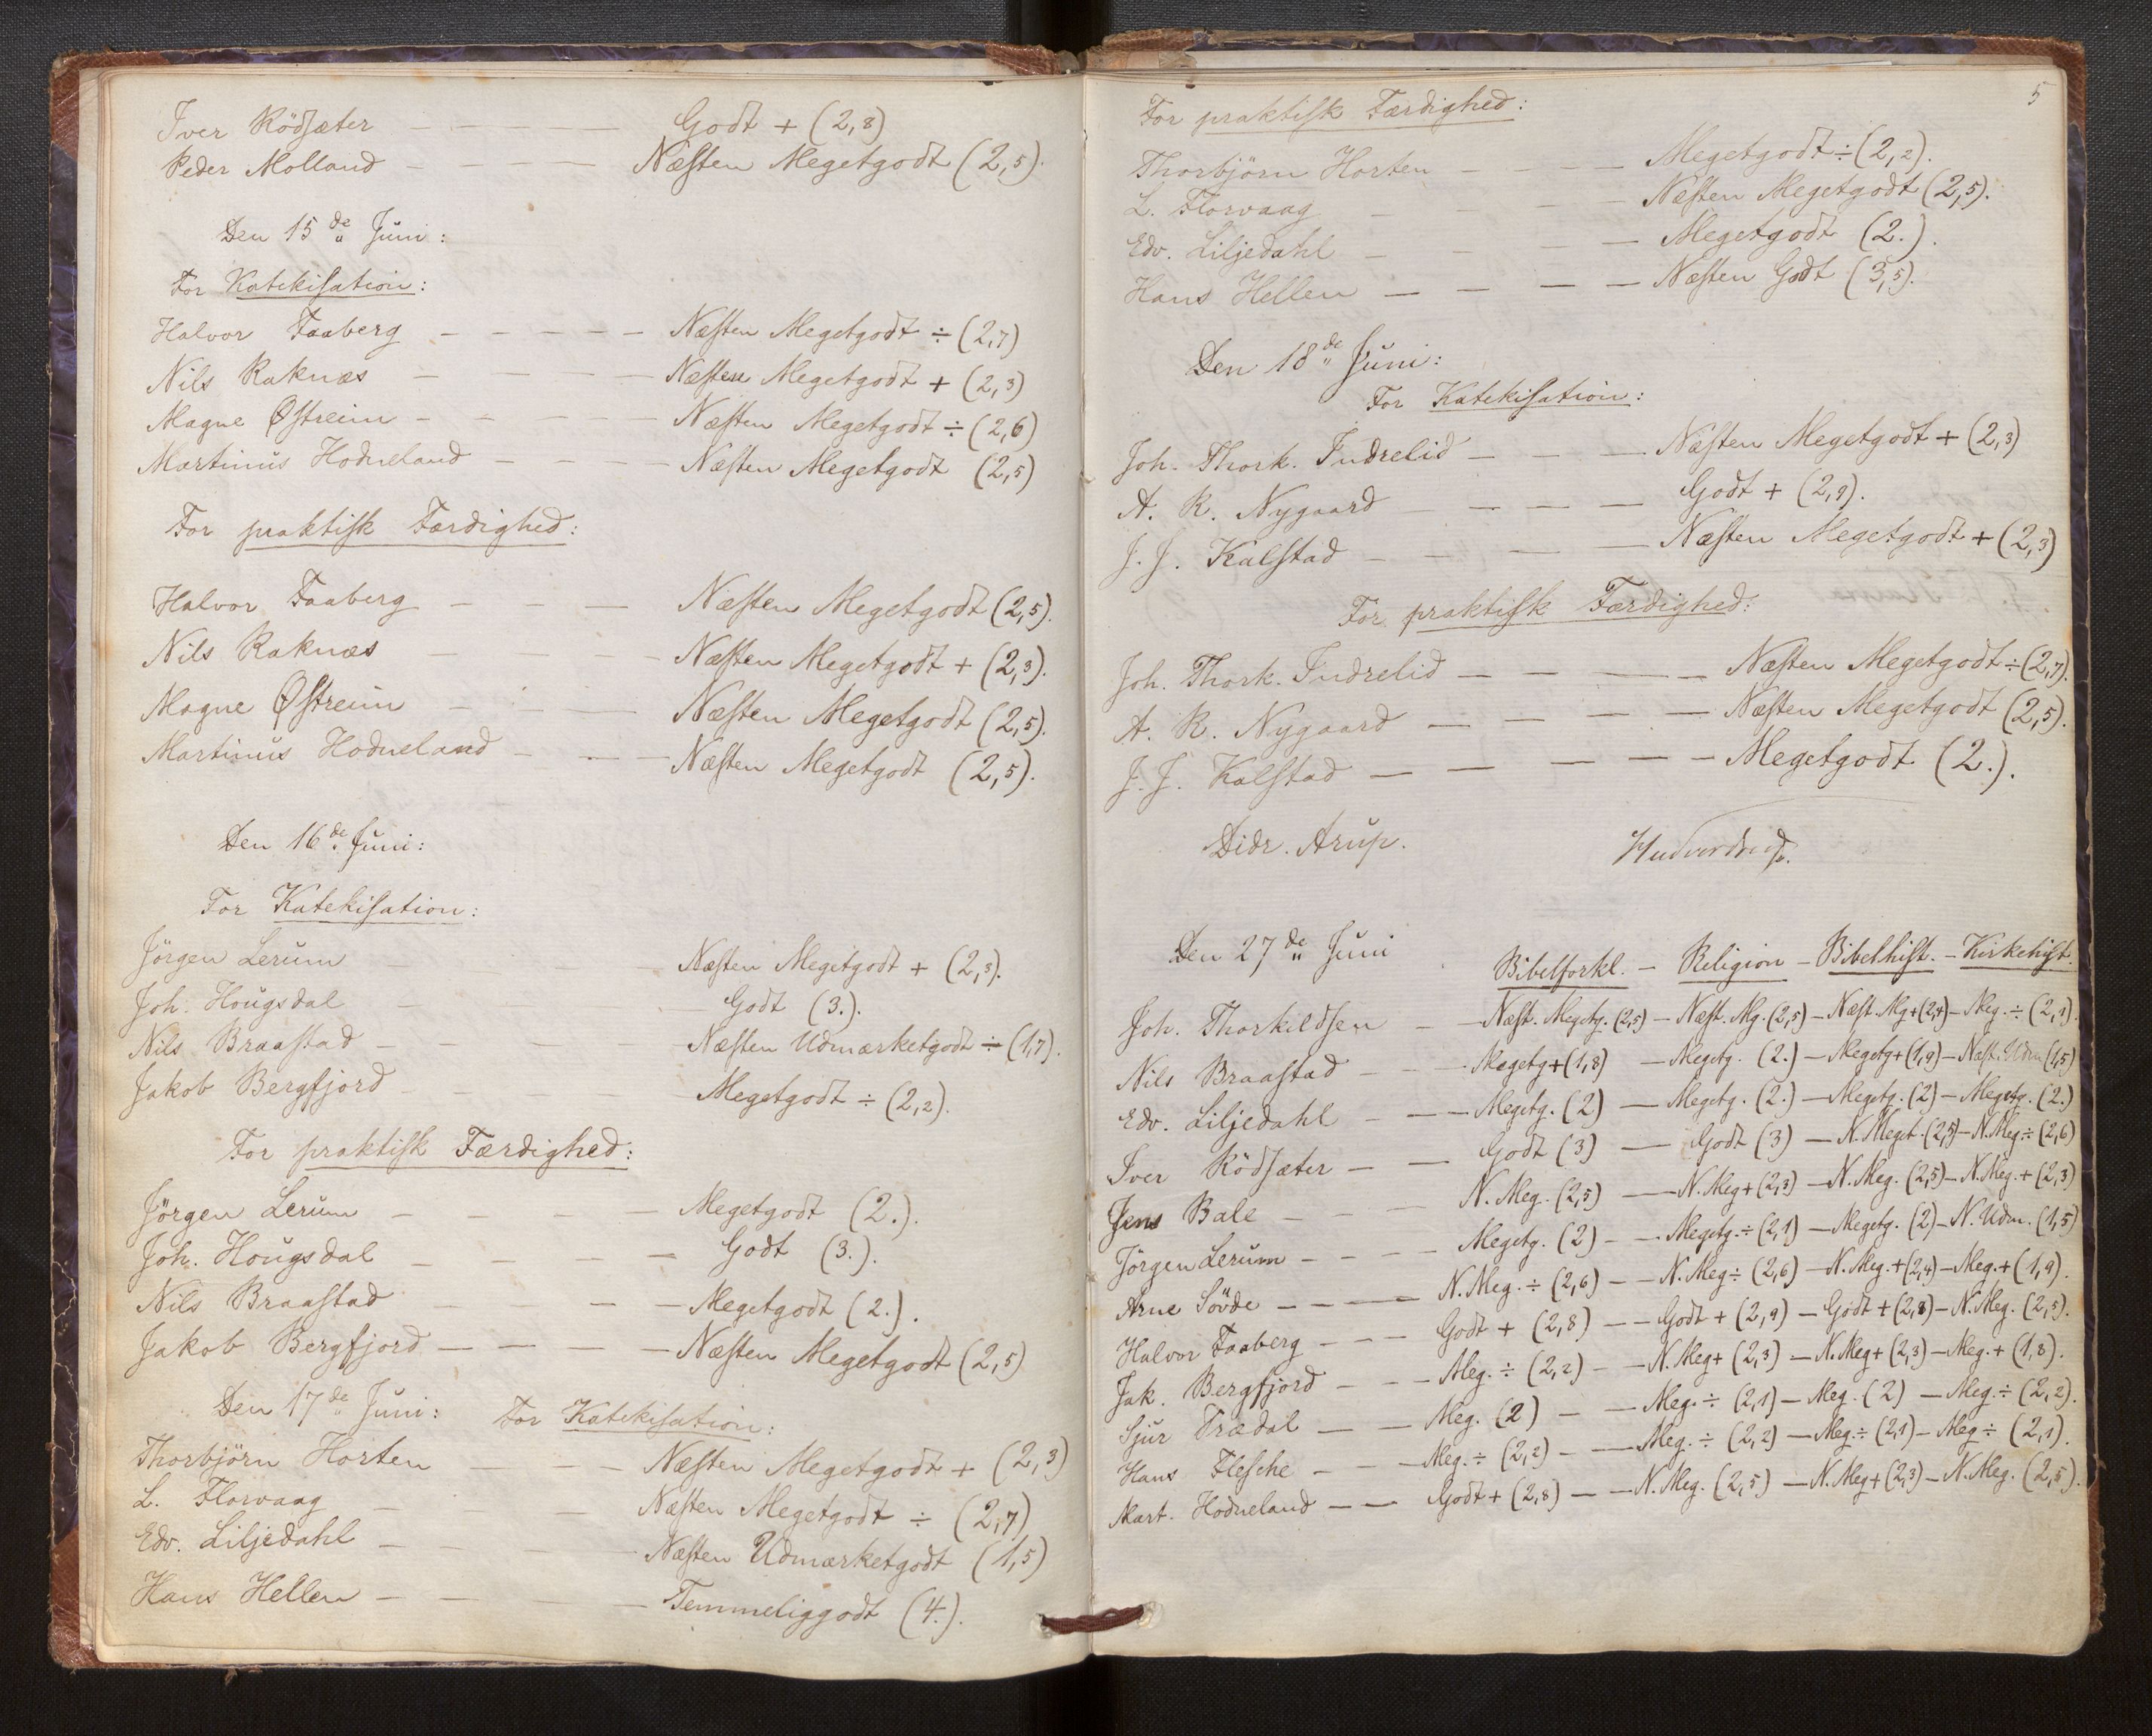 Iver Rödsæter — — — — Godt + (2,8)
Peder Molland — — — — Næsten Megetgodt (2,5).
Den 15de Juni:
For Katekisation:
Halvor Faaberg — — — — — Næsten Megetgodt ÷ (2,7)
Nils Raknæs — — — — — Næsten Megetgodt + (2,3)
Magne Østreim — — — — — Næsten Megetgodt ÷ (2,6)
Martinus Hodneland — — — — Næsten Megetgodt (2,5)
For praktisk Færdighed:
Halvor Faaberg — — — Næsten Megetgodt (2,5).
Nils Raknæs — — — — Næsten Megetgodt + (2,3).
Magne Østreim — — — Næsten Megetgodt (2,5).
Martinus Hodneland — — — Næsten Megetgodt (2,5).
Den 16de Juni:
For Katekisation:
Jörgen Lerum — — — Næsten Megetgodt + (2,3).
Joh. Hougsdal — — — — Godt (3.).
Nils Braastad — — — — Næsten Udmærketgodt ÷ (1,7).
Jakob Bergfjord — — — — Megetgodt ÷ (2,2).
For praktisk Færdighed:
Jörgen Lerum — — — — Megetgodt (2.).
Joh. Hougsdal — — — — Godt (3.).
Nils Braastad — — — — Megetgodt (2.).
Jakob Bergfjord — — — — — Næsten Megetgodt (2,5)
Den 17de Juni: For Katekisation:
Thorbjörn Horten — — — Næsten Megetgodt + (2,3)
L. Florvaag — — — Næsten Megetgodt ÷ (2,7)
Edv. Liljedahl — — — — Næsten Udmærketgodt (1,5)
Hans Hellen — — — — Temmeliggodt (4.).
5
For praktisk Færdighed:
Thorbjörn Horten — — — — Megetgodt ÷ (2,2).
L. Florvaag — — — — Næsten Megetgodt (2,5).
Edv. Liljedahl — — — — Megetgodt (2.).
Hans Hellen — — — — Næsten Godt (3,5).
Den 18de Juni:
For Katekisation:
Joh. Thork. Indrelid — — — Næsten Megetgodt + (2,3)
A. R. Nygaard — — — — Godt + (2,9).
J. J. Kalstad — — — — Næsten Megetgodt + (2,3)
For praktisk Færdighed:
Joh. Thork. Indrelid — — — — Næsten Megetgodt ÷ (2,7).
A. R. Nygaard — — — — — Næsten Megetgodt (2,5).
J. J. Kalstad — — — — — Megetgodt (2.).
Didr. Arup.
Den 27de Juni Bibelforkl. — Religion — Bibelhist. — Kirkehist.
Joh. Thorkildsen — — Næst. Megetg. (2,5) — Næst. Mg. (2,5) — Næst. Mg + (2,4) — Meg. ÷ (2,1).
Nils Braastad — — — Megetg + (1,8) — Megetg. (2.) — Megetg + (1,9) — Næst. Udm (1,5)
Edv. Liljedahl — — — Megetg. (2) — Megetg. (2.) — Megetg. (2) — Megetg. (2.)
Iver Rödsæter — — Godt (3) — Godt (3) — N. Meget. (2,5) — N. Meg. ÷ (2,6)
Jens Bale — — — N. Meg. (2,5) — N. Meg + (2,3) — N. Meg. (2,5) — N. Meg. + (2,3)
Jörgen Lerum — — — — Megetg. (2) — — Megetg. ÷ (2,1) — Megetg. (2) — N. Udm. (1,5)
Arne Sövde — — — — N. Meg. ÷ (2,6) — — N. Meg ÷ (2,6) — N. Meg. + (2,4) — Meg. + (1,9).
Halvor Faaberg — — — Godt + (2,8) — — Godt + (2,9) — Godt + (2,8) — N. Meg. (2,5).
Jak. Bergfjord — — — Meg. ÷ (2,2) — — N. Meg + (2,3) — N. Meg + (2,3) — Meg. + (1,8).
Sjur Trædal — — Meg. (2) — — Meg. ÷ (2,1) — Meg. (2) — Meg. ÷ (2,2).
Hans Flesche — — — Meg. ÷ (2,2) — — Meg. ÷ (2,2) — Meg. ÷ (2,1) — Meg ÷ (2,1).
Mart. Hodneland — — Godt + (2,8) — — N. Meg. (2,5) — N. Meg + (2,3) — N. Meg. (2,5).